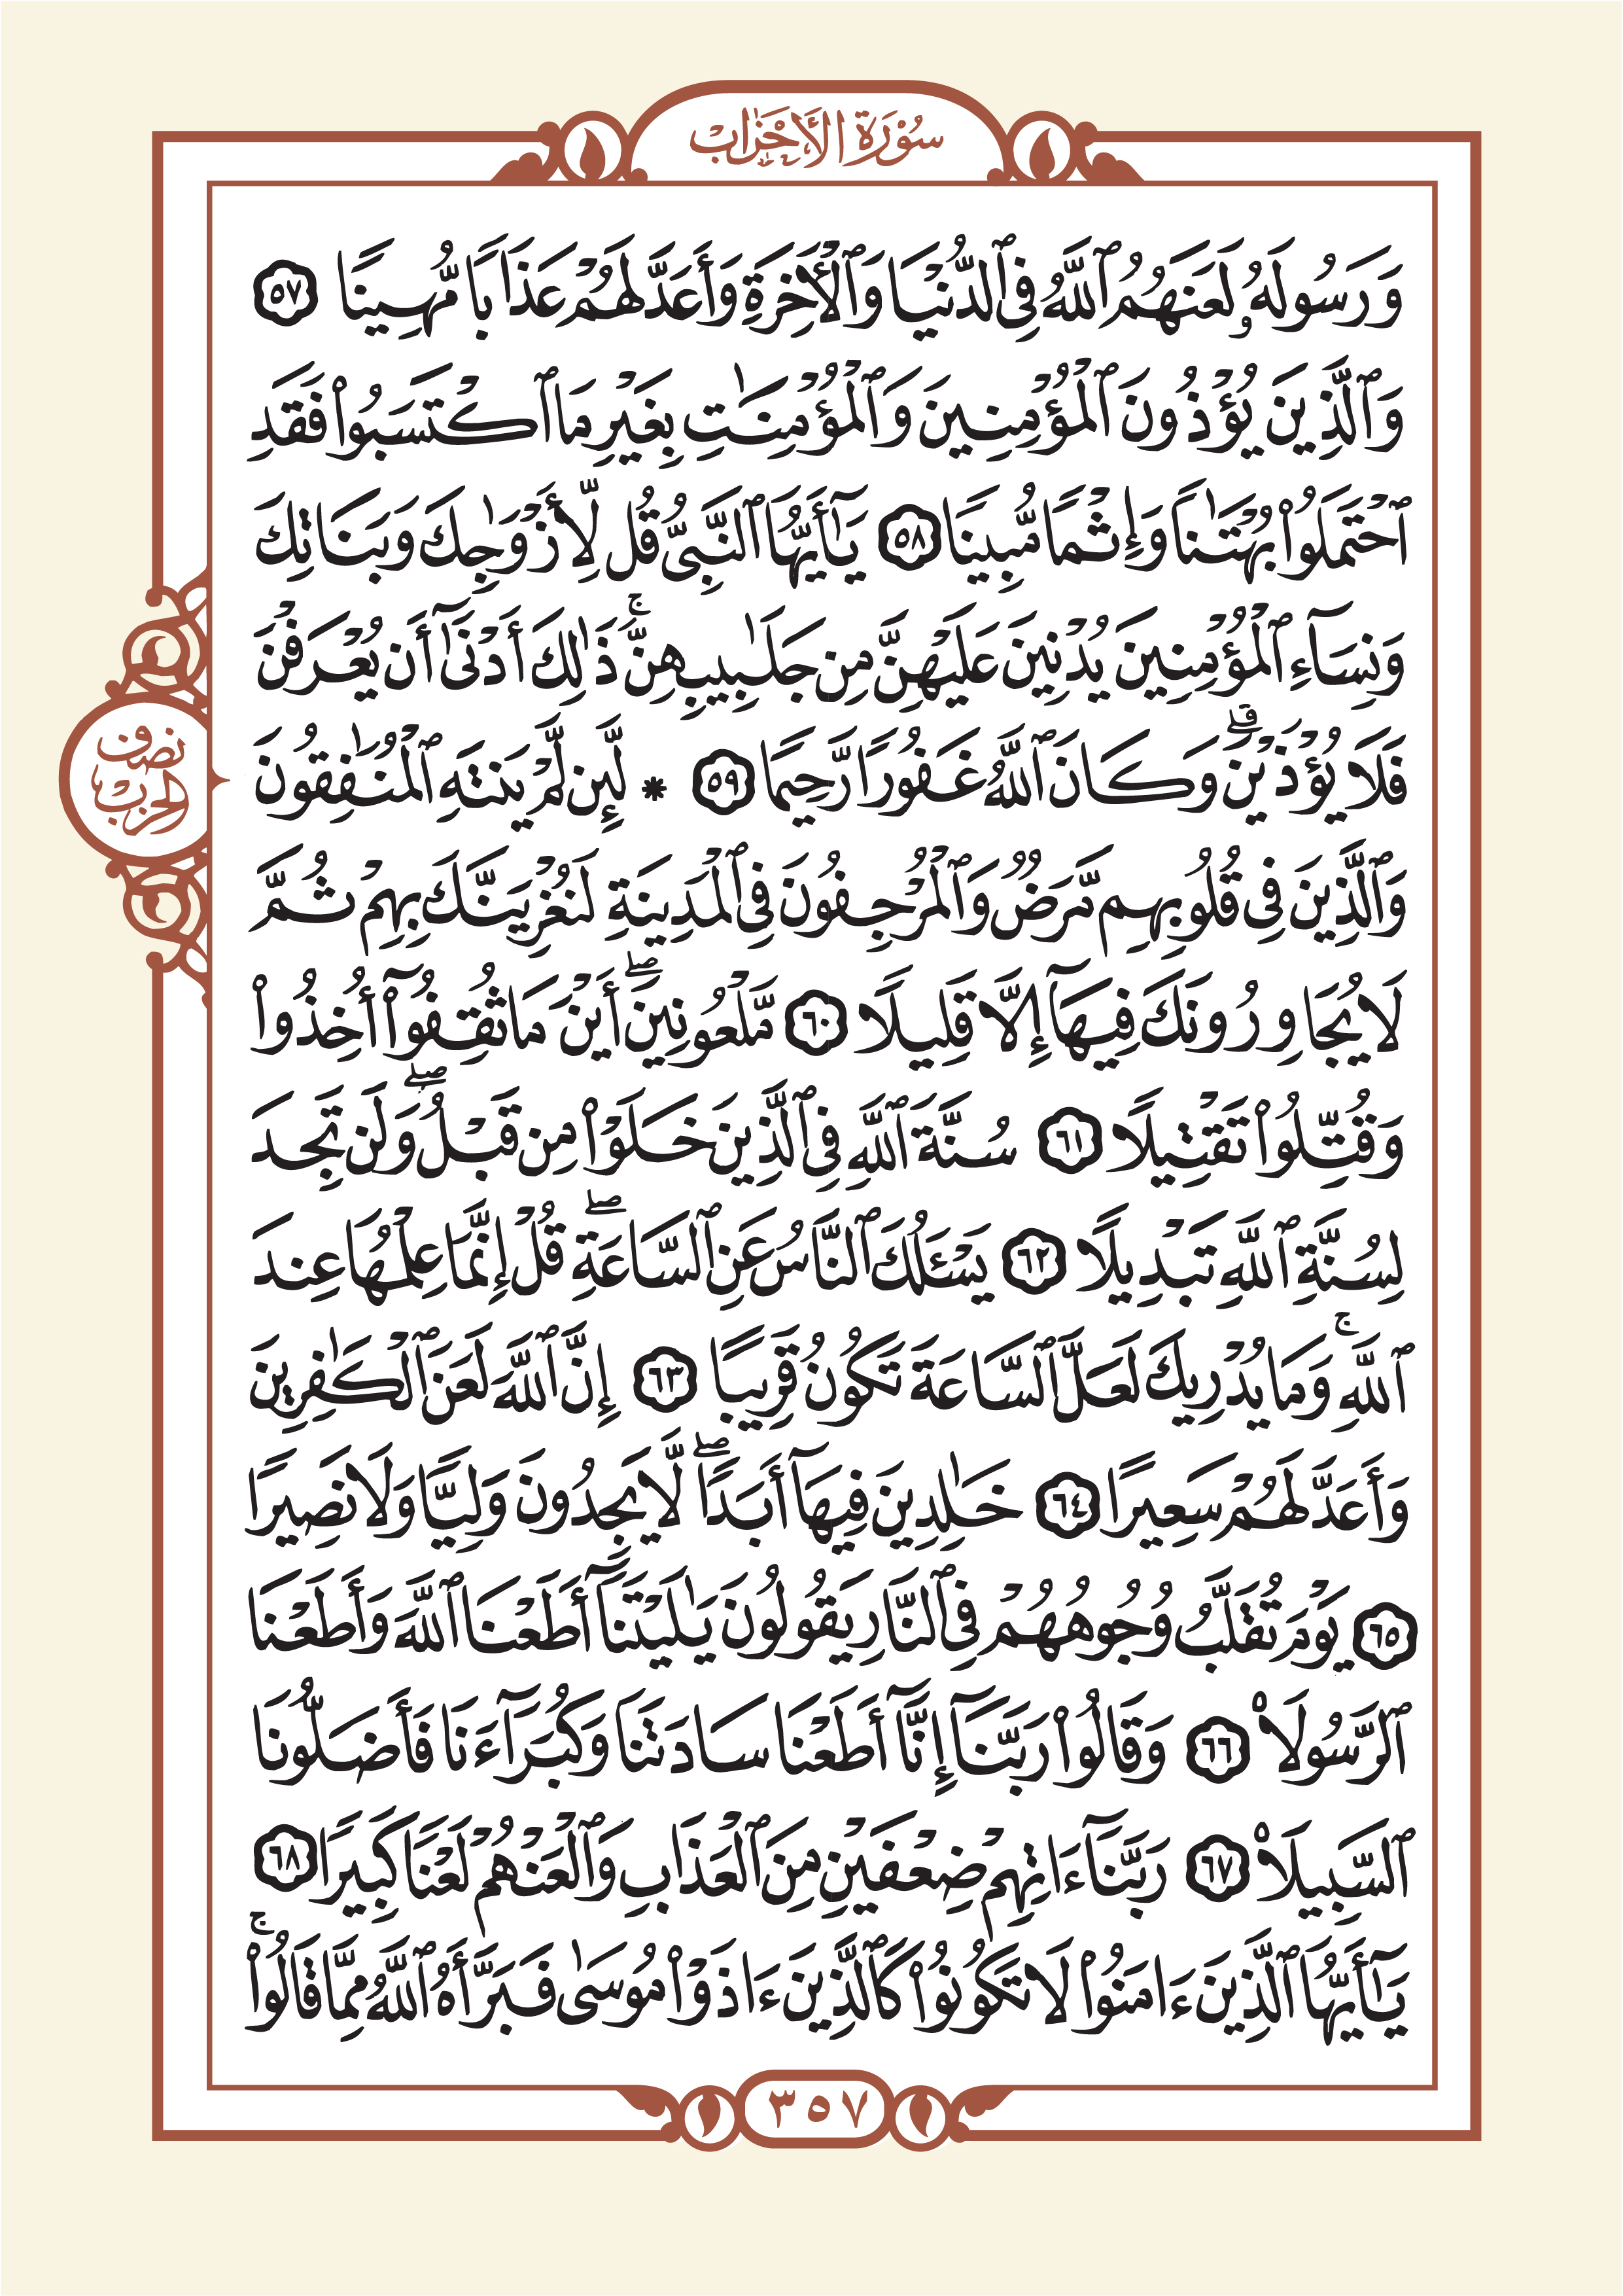 سُورَةُ الأَحْزَاب
وَرَسُولَهُۥ لَعَنَهُمُ ٱللَّهُ فِى ٱلدُّنْيَا وَٱلْأَخِرَةِ وَأَعَدَّ لَهُمْ عَذَابًا مُّهِينًا ٥٧
وَٱلَّذِينَ يُؤْذُونَ ٱلْمُؤْمِنِينَ وَٱلْمُؤْمِنَـٰتِ بِغَيْرِ مَا ٱكْتَسَبُوا۟ فَقَدِ
ٱحْتَمَلُوا۟ بُهْتَـٰنًا وَإِثْمًا مُّبِينًا ٥٨ يَـٰٓأَيُّهَا ٱلنَّبِىُّ قُل لِّأَزْوَٰجِكَ وَبَنَاتِكَ
وَنِسَآءِ ٱلْمُؤْمِنِينَ يُدْنِينَ عَلَيْهِنَّ مِن جَلَـٰبِيبِهِنَّ ۚ ذَٰلِكَ أَدْنَىٰٓ أَن يُعْرَفْنَ
فَلَا يُؤْذَيْنَ ۗ وَكَانَ ٱللَّهُ غَفُورًا رَّحِيمًا ٥٩ * لَّئِن لَّمْ يَنتَهِ ٱلْمُنَـٰفِقُونَ
نصف
الحزب
وَٱلَّذِينَ فِى قُلُوبِهِم مَّرَضٌ وَٱلْمُرْجِفُونَ فِى ٱلْمَدِينَةِ لَنُغْرِيَنَّكَ بِهِمْ ثُمَّ
لَا يُجَاوِرُونَكَ فِيهَآ إِلَّا قَلِيلًا ٦٠ مَّلْعُونِينَ ۖ أَيْنَمَا ثُقِفُوٓا۟ أُخِذُوا۟
وَقُتِّلُوا۟ تَقْتِيلًا ٦١ سُنَّةَ ٱللَّهِ فِى ٱلَّذِينَ خَلَوْا۟ مِن قَبْلُ ۖ وَلَن تَجِدَ
لِسُنَّةِ ٱللَّهِ تَبْدِيلًا ٦٢ يَسْـَٔلُكَ ٱلنَّاسُ عَنِ ٱلسَّاعَةِ ۖ قُلْ إِنَّمَا عِلْمُهَا عِندَ
ٱللَّهِ ۚ وَمَا يُدْرِيكَ لَعَلَّ ٱلسَّاعَةَ تَكُونُ قَرِيبًا ٦٣ إِنَّ ٱللَّهَ لَعَنَ ٱلْكَـٰفِرِينَ
وَأَعَدَّ لَهُمْ سَعِيرًا ٦٤ خَـٰلِدِينَ فِيهَآ أَبَدًا ۖ لَّا يَجِدُونَ وَلِيًّا وَلَا نَصِيرًا
٦٥ يَوْمَ تُقَلَّبُ وُجُوهُهُمْ فِى ٱلنَّارِ يَقُولُونَ يَـٰلَيْتَنَآ أَطَعْنَا ٱللَّهَ وَأَطَعْنَا
ٱلرَّسُولَا۠ ٦٦ وَقَالُوا۟ رَبَّنَآ إِنَّآ أَطَعْنَا سَادَتَنَا وَكُبَرَآءَنَا فَأَضَلُّونَا
ٱلسَّبِيلَا۠ ٦٧ رَبَّنَآ ءَاتِهِمْ ضِعْفَيْنِ مِنَ ٱلْعَذَابِ وَٱلْعَنْهُمْ لَعْنًا كَبِيرًا ٦٨
يَـٰٓأَيُّهَا ٱلَّذِينَ ءَامَنُوا۟ لَا تَكُونُوا۟ كَٱلَّذِينَ ءَاذَوْا۟ مُوسَىٰ فَبَرَّأَهُ ٱللَّهُ مِمَّا قَالُوا۟ ۚ
٣٥٧